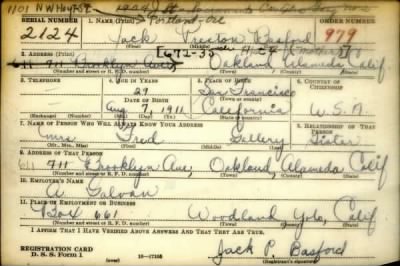 1101 N W Hoyt St.
SERIAL NUMBER 1. NAME (Print) ORDER NUMBER
Portland - Ore
2124 Jack Preston Basford 979
(First) (Middle) (Last)
2. ADDRESS (Print)
711 Brooklyn Ave, Oakland Alameda Calif.
(Number and street or R. F. D. number) (Town) (County) (State)
3. TELEPHONE 4. AGE IN YEARS 5. PLACE OF BIRTH 6. COUNTRY OF CITIZENSHIP
29 San Francisco
DATE OF BIRTH (Town or county)
Aug 7 1911 California U.S.A.
(Exchange) (No.) (Mo.) (Day) (Yr.) (State or country)
7. NAME OF PERSON WHO WILL ALWAYS KNOW YOUR ADDRESS 8. RELATIONSHIP OF THAT PERSON
Mrs Fred Gallery Sister
(Mr., Mrs., Miss) (First) (Middle) (Last)
9. ADDRESS OF THAT PERSON
711 Brooklyn Ave, Oakland, Alameda Calif
(Number and street or R. F. D. number) (Town) (County) (State)
10. EMPLOYER'S NAME
A. Galvan
11. PLACE OF EMPLOYMENT OR BUSINESS
Box 661 Woodland Yolo, Calif
(Number and street or R. F. D. number) (Town) (County) (State)
I AFFIRM THAT I HAVE VERIFIED ABOVE ANSWERS AND THAT THEY ARE TRUE.
REGISTRATION CARD
D. S. S. Form 1 16-17105 Jack P. Basford
(Registrant's signature)